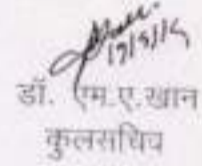 17/5/14
डॉ. एम.ए.खान
कुलसचिव